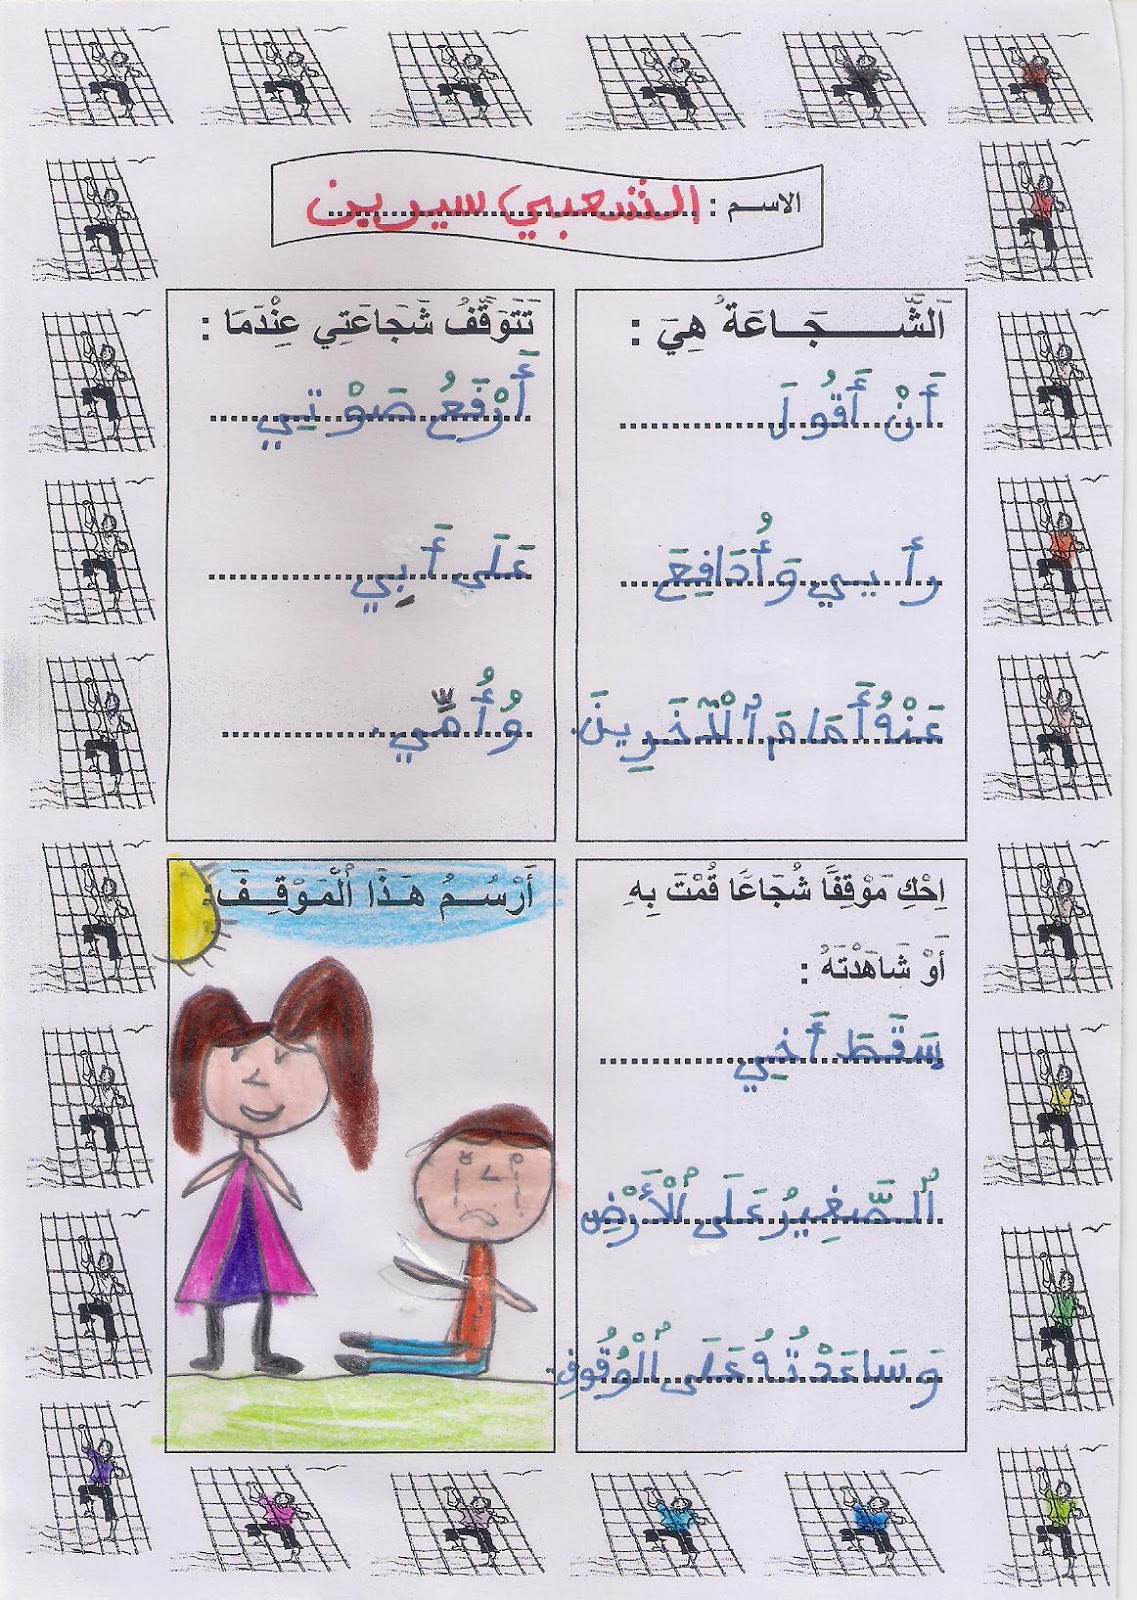 الاسم : الشعبي سيرين
اَلشَّجَاعَةُ هِيَ :
أَنْ أَقُولَ
رأيي وَأُدَافِعَ
عَنْهُ أَمَامَ ٱلْآخَرِينَ.
تَتَوَقَّفُ شَجَاعَتِي عِنْدَمَا :
أَرْفَعُ صَوْتِي
عَلَى أَبِي
وُأُمِّي.
اِحْكِ مَوْقِفًا شُجَاعًا قُمْتَ بِهِ
أَوْ شَاهَدْتَهُ :
سَقَطَ أَخِي
ٱلصَّغِيرُ عَلَى ٱلْأَرْضِ
وَسَاعَدْتُهُ عَلَى ٱلْوُقُوفِ.
أَرْسُمُ هَذَا ٱلْمَوْقِفَ: